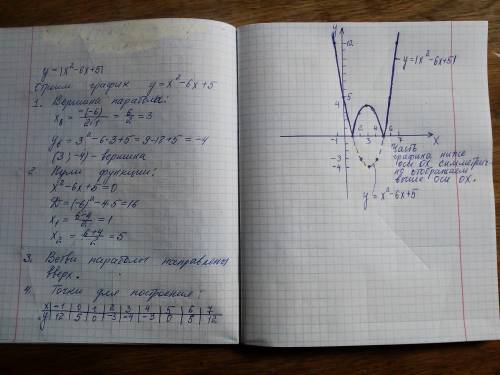 y=|x²-6x+5|
Строим график y=x²-6x+5
1. Вершина параболы:
x₀ = -(-6)/2·1 = 6/2 = 3
y₀ = 3²-6·3+5=9-18+5=-4
(3;-4)-вершина
2. Нули функции:
x²-6x+5=0
D=(-6)²-4·5=16
x₁ = (6-4)/2 = 1
x₂ = (6+4)/2 = 5
3. Ветви параболы направлены
вверх.
4. Точки для построения:
x | -1 | 0 | 1 | 2 | 3 | 4 | 5 | 6 | 7
y | 12 | 5 | 0 | -3 | -4 | -3 | 0 | 5 | 12
y
12
y=|x²-6x+5|
5
4
-1 2 4 6 7 x
-3
-4
Часть
графика ниже
оси OX симметрич
но отображаем
выше оси OX.
y=x²-6x+5